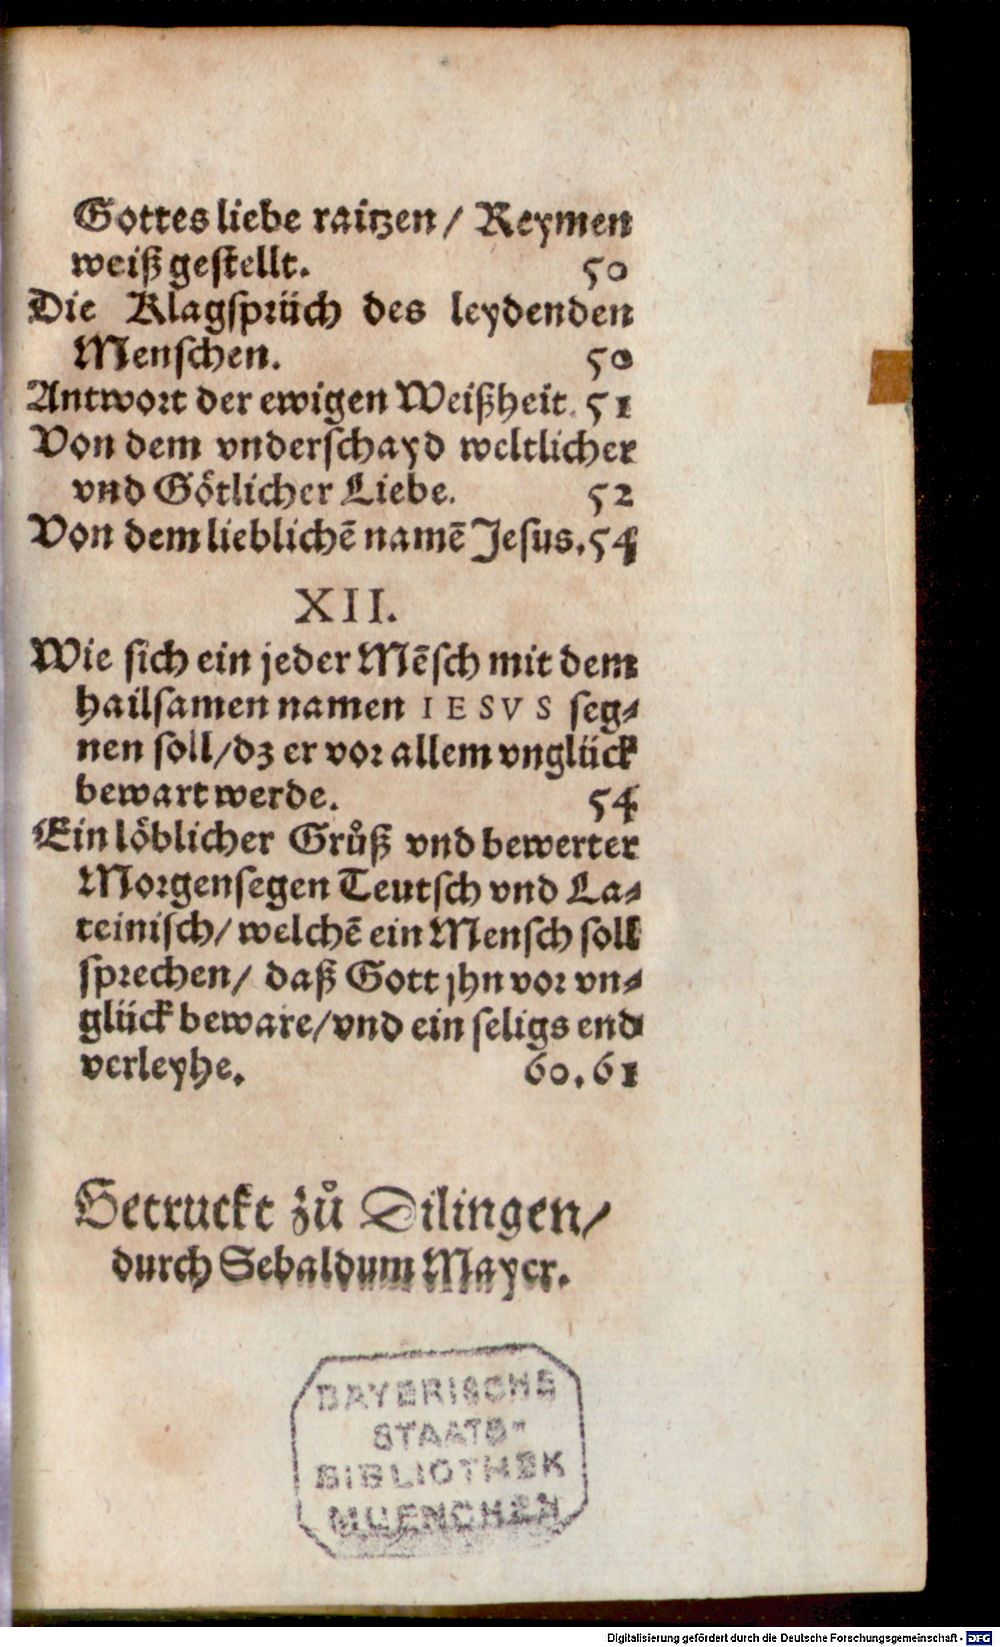 Gottes liebe raitzen / Reymen
weiß gestellt. 50
Die Klagsprüch des leydenden
Menschen. 50
Antwort der ewigen Weißheit. 51
Von dem vnderschayd weltlicher
vnd Götlicher Liebe. 52
Von dem lieblichē namē Jesus. 54
XII.
Wie sich ein jeder Mēsch mit dem
hailsamen namen IESVS seg-
nen soll/dz er vor allem vnglück
bewart werde. 54
Ein löblicher Grůß vnd bewerter
Morgensegen Teutsch vnd La-
teinisch/ welchē ein Mensch soll
sprechen/ daß Gott jhn vor vn-
glück beware/vnd ein seligs end
verleyhe. 60.61
Getruckt zů Dilingen/
durch Sebaldum Mayer.
BAYERISCHE
STAATS-
BIBLIOTHEK
MUENCHEN
Digitalisierung gefördert durch die Deutsche Forschungsgemeinschaft - DFG